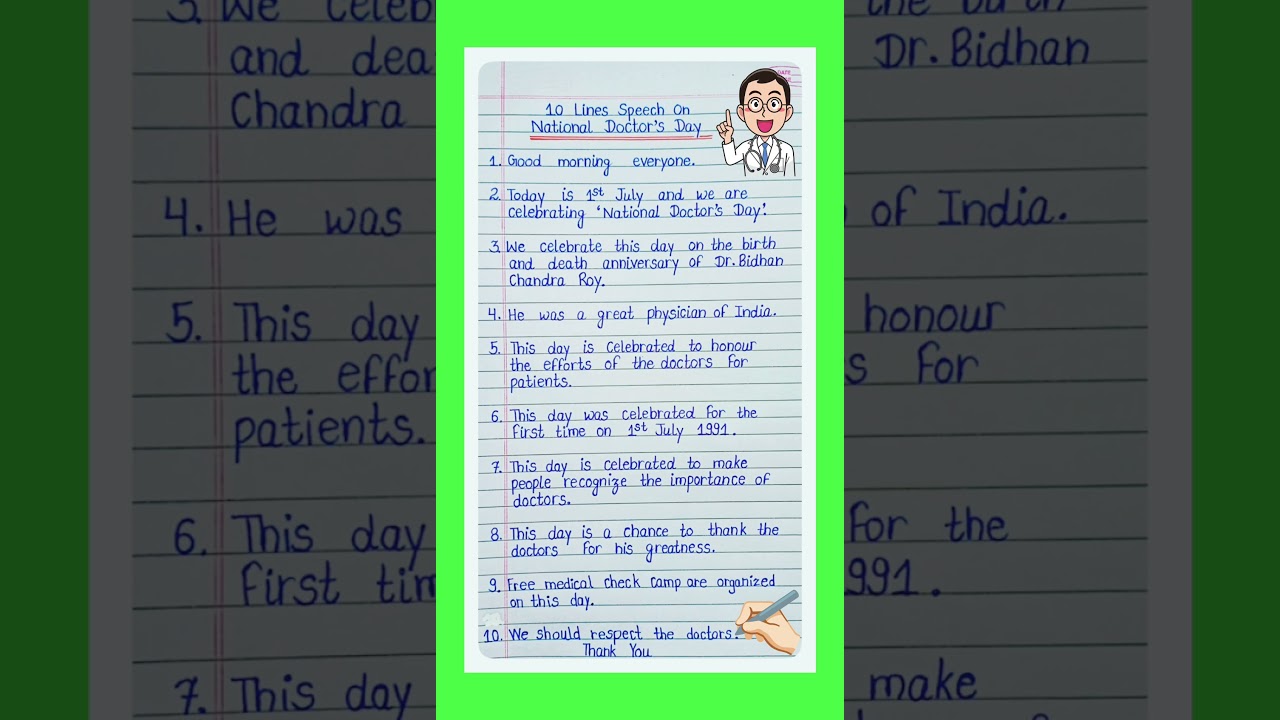 10 Lines Speech On
National Doctor's Day
1. Good morning everyone.
2. Today is 1st July and we are
celebrating 'National Doctor's Day'.
3. We celebrate this day on the birth
and death anniversary of Dr. Bidhan
Chandra Roy.
4. He was a great physician of India.
5. This day is celebrated to honour
the efforts of the doctors for
patients.
6. This day was celebrated for the
first time on 1st July 1991.
7. This day is celebrated to make
people recognize the importance of
doctors.
8. This day is a chance to thank the
doctors for his greatness.
9. Free medical check camp are organized
on this day.
10. We should respect the doctors.
Thank You
3. We celeb
and dea
Chandra
4. He was
5. This day
the effor
patients.
6. This day
first tim
7. This day
Dr. Bidhan
of India.
honour
s for
for the
991.
make